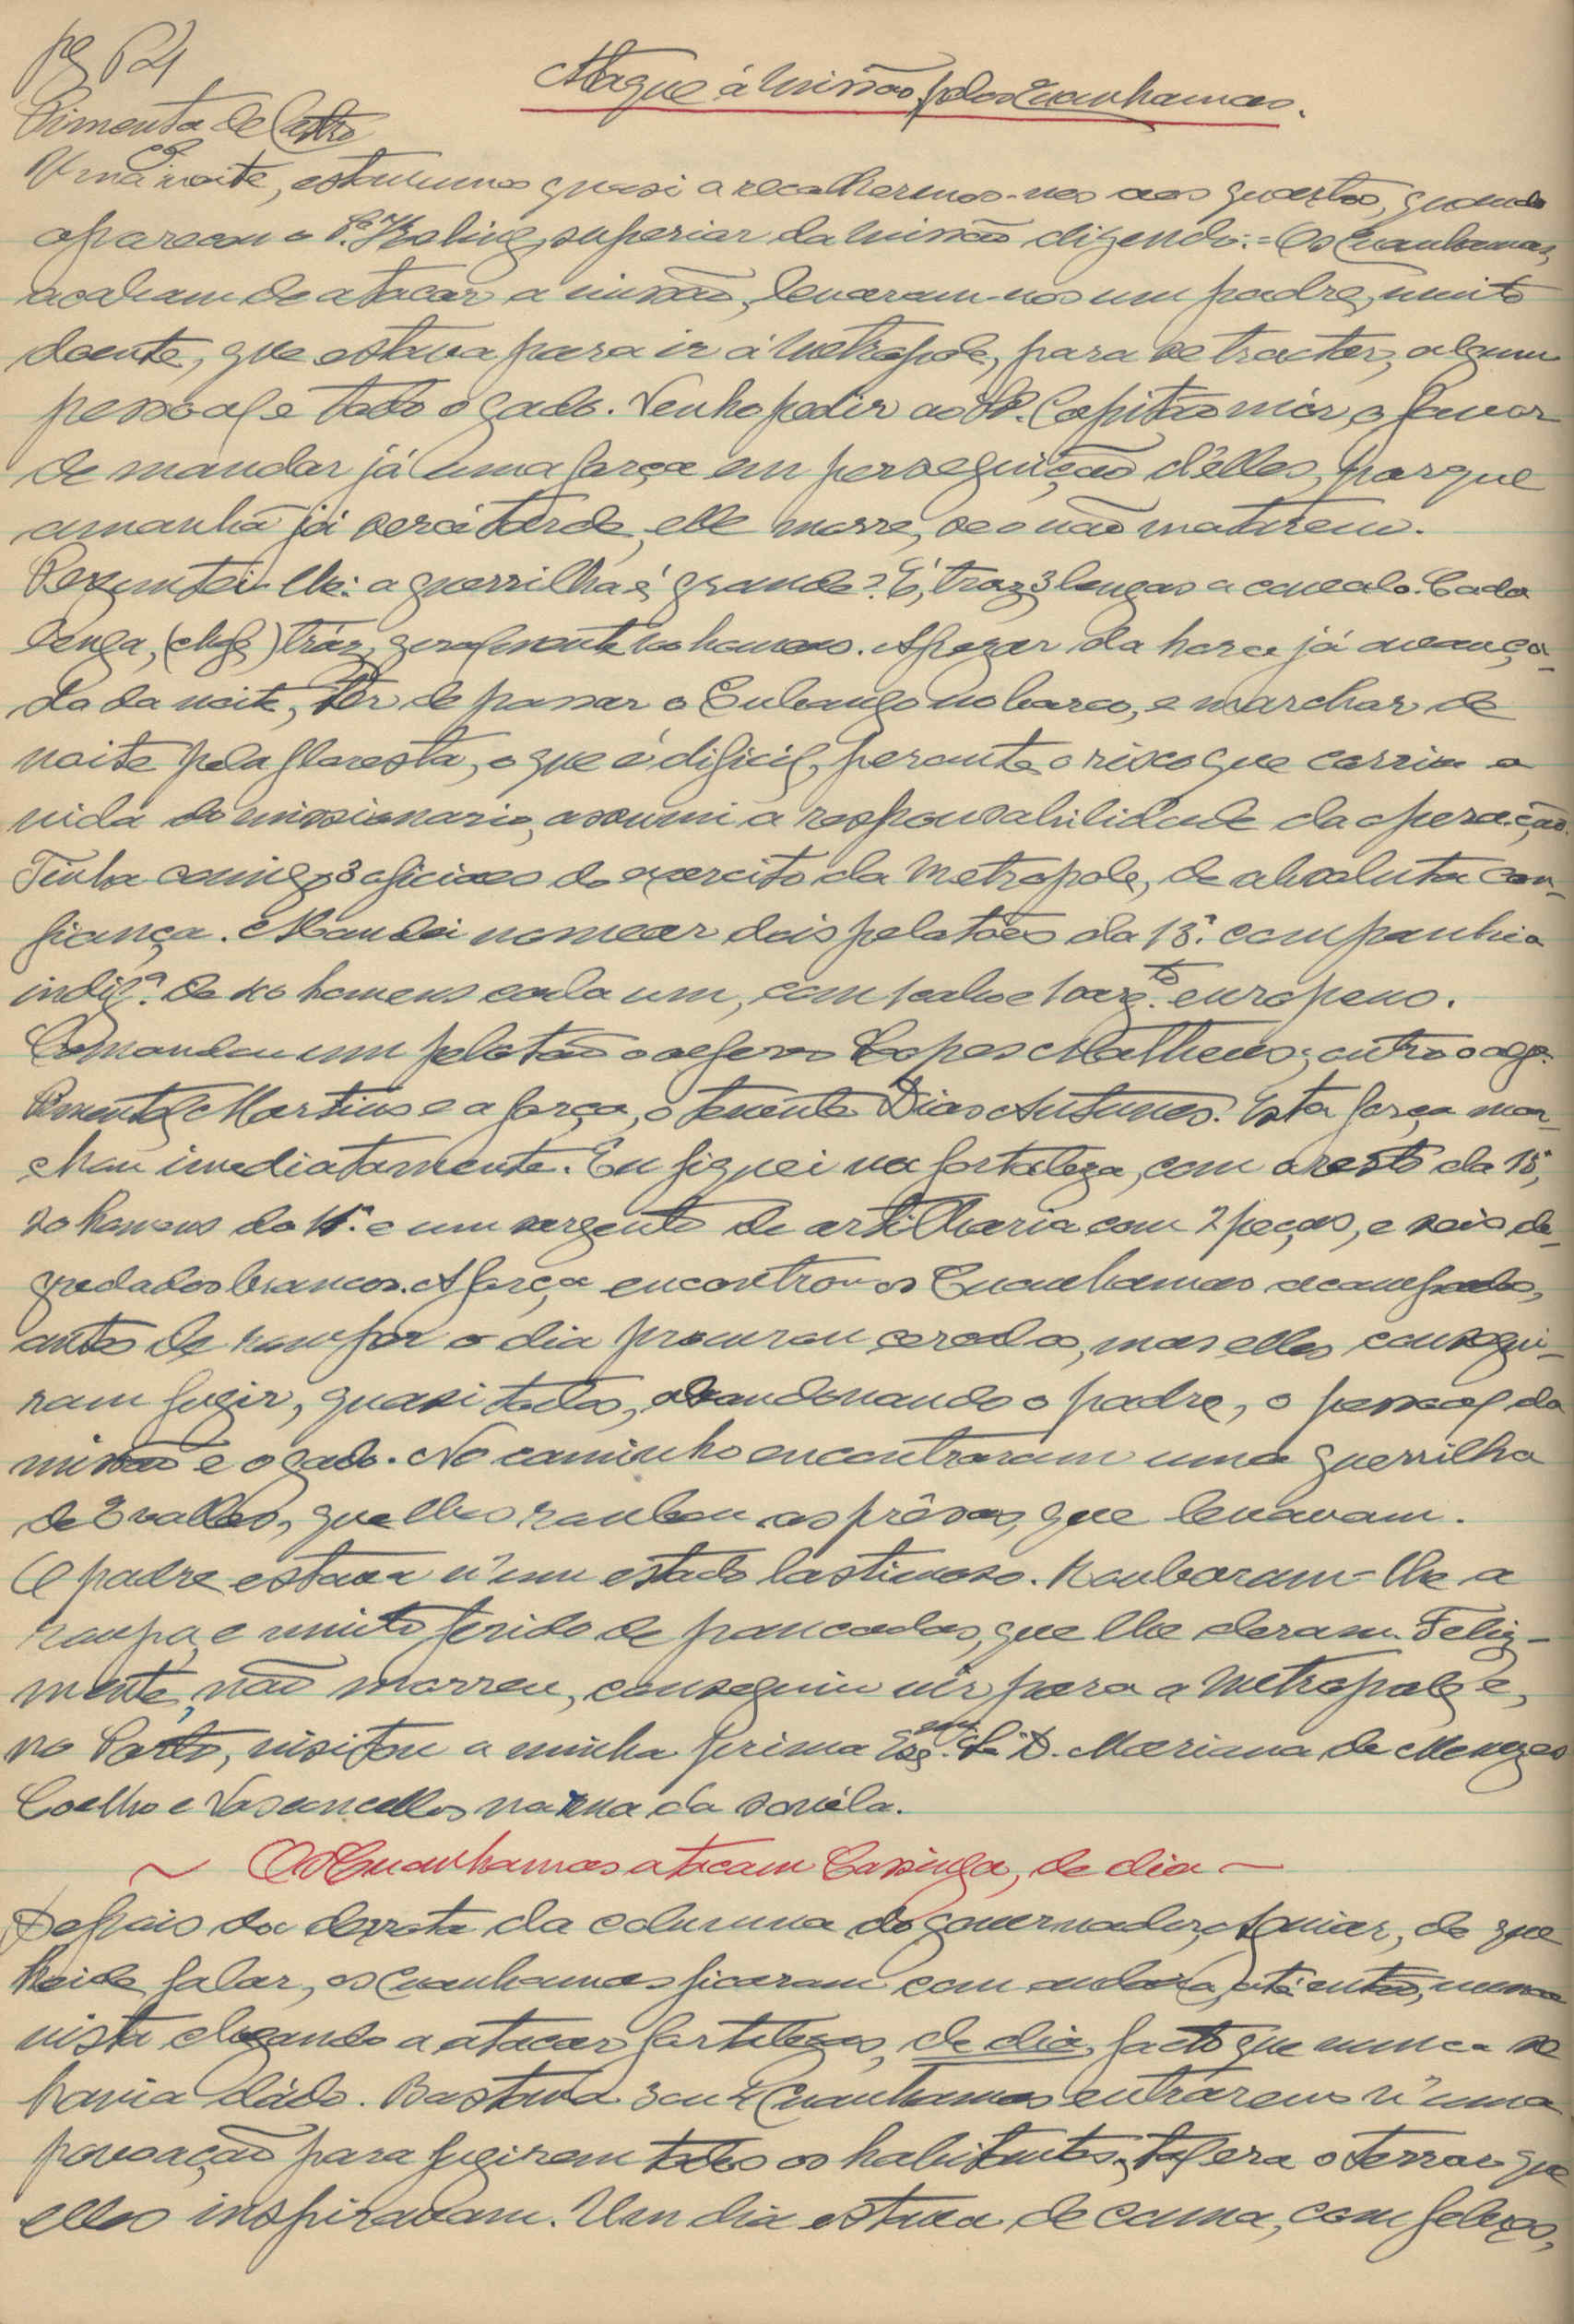 pg 64
Ataque á missão, pelos Cuanhamas.
Pimenta de Castro
Uma noite, estavamos quasi a recolhermos-nos aos quartos, quando
apareceu o P.e Keling, superior da missão dizendo: = Os Cuanhamas,
acabam de atacar a missão, levaram-nos um padre, muito
doente, que estava para ir á Metropole, para se tractar, algum
pessoal e todo o gado. Venho pedir ao Sr. Capitão mór, o favor
de mandar já uma força em perseguição d'elles, porque
amanhã já será tarde, elle morre, se o não matarem.
Perguntei-lhe: a guerrilha é grande? É, traz 3 lengas a cavalo. Cada
lenga, (chefe) tráz, geralmente homens. Apezar da hora já avança-
da da noite, ter de passar o Cubango no barco, e marchar de
noite pela floresta, o que é dificil, perante o risco que corria a
vida do missionario, assumi a responsabilidade da operação.
Tinha comigo 3 oficiaes do exercito da Metropole, de absoluta con-
fiança. Mandei nomear dois pelotões da 15.ª companhia
indig.ª de 40 homens cada um, com 1 cabo e 1 sarg.to europeus.
Comandou um pelotão o alferes Lopes Matheus; outro o alf.
Pimentel Martins e a força, o tenente Dias Antunes. Esta força mar-
chou imediatamente. Eu fiquei na fortaleza, com o resto da 15ª,
20 homens da e um sargento de artilharia com 2 peças, e seis de-
gredados brancos. A força encontrou os Cuanhamas acampados,
antes de romper o dia procurou cercal-os, mas elles consegui-
ram fugir, quasi todos, abandonando o padre, o pessoal da
missão e o gado. No caminho encontraram uma guerrilha
de Evalles, que lhes roubou as prêsas, que levavam.
O padre estava n'um estado lastimoso. Roubaram-lhe a
roupa, e muito ferido de pancadas, que lhe deram. Feliz-
mente, não morreu, conseguiu vir para a Metropole e,
no Porto, visitou a minha prima Exc.ma Sr.a D. Mariana de Menezes
Coelho e Vasconcellos na rua da
~ Os Cuanhamas atacam Cassinga, de dia ~
Depois da derrota da columna do governador, Aguiar, de que
heide falar, os Cuanhamas ficaram com audacia, até então, nunca
vista chegando a atacar fortalezas, de dia, facto que nunca se
havia dado. Bastava 3 ou 4 Cuanhamas entrárem n'uma
povoação para fugirem todos os habitantes, tal era o terror que
elles inspiravam. Um dia estava de cama, com febres,